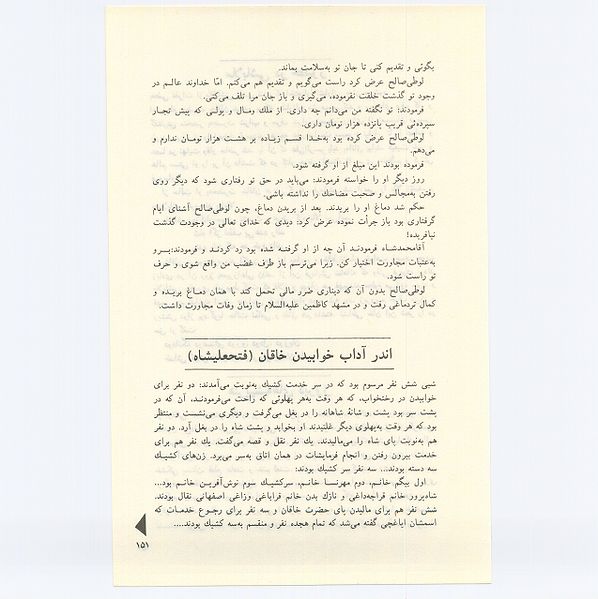 بگوئی و تقدیم کنی تا جان تو به‌سلامت بماند.
لوطی‌صالح عرض کرد راست می‌گویم و تقدیم هم می‌کنم. امّا خداوند عالم در
وجود تو گذشت خلقت نفرموده، می‌گیری و باز جان مرا تلف می‌کنی.
فرمودند: تو نگفته من می‌دانم چه داری. از ملك ومال و پولی که پیش تجار
سپرده‌ئی قریب پانزده هزار تومان داری.
لوطی‌صالح عرض کرده بود به‌خدا قسم زیاده بر هشت هزار تومان ندارم و
می‌دهم.
فرموده بودند این مبلغ از او گرفته شود.
روز دیگر او را خواسته فرمودند: می‌باید در حق تو رفتاری شود که دیگر روی
رفتن به‌مجالس و صحبت مضاحك را نداشته باشی.
حکم شد دماغ او را بریدند. بعد از بریدن دماغ، چون لوطی‌صالح آشنای ایام
گرفتاری بود باز جرأت نموده عرض کرد: دیدی که خدای تعالی در وجودت گذشت
نیافریده!
آقامحمدشاه فرمودند آن چه از او گرفته شده بود رد کردند و فرمودند: برو
به‌عتبات مجاورت اختیار کن. زیرا می‌ترسم باز طرف غضب من واقع شوی و حرف
تو راست شود.
لوطی‌صالح بدون آن که دیناری ضرر مالی تحمل کند با همان دماغ بریده و
کمال تردماغی رفت و در مشهد کاظمین علیه‌السلام تا زمان وفات مجاورت داشت.
اندر آداب خوابیدن خاقان (فتحعلیشاه)
شبی شش نفر مرسوم بود که در سر خدمت کشیك به‌نوبت می‌آمدند: دو نفر برای
خوابیدن در رختخواب، که هر وقت به‌هر پهلوئی که راحت می‌فرمودند، آن که در
پشت سر بود پشت و شانهٔ شاهانه را در بغل می‌گرفت و دیگری می‌نشست و منتظر
بود که هر وقت به‌پهلوی دیگر غلتیدند او بخوابد و پشت شاه را در بغل آرد. دو نفر
هم به‌نوبت پای شاه را می‌مالیدند. یك نفر نقل و قصه می‌گفت. یك نفر هم برای
خدمت بیرون رفتن و انجام فرمایشات در همان اتاق به‌سر می‌برد. زن‌های کشیك
سه دسته بودند... سه نفر سر کشیك بودند:
اول بیگم خانم، دوم مهرنسا خانم، سرکشیك سوم نوش‌آفرین خانم بود...
شاه‌پرور خانم قراجه‌داغی و نازك بدن خانم قراباغی وزاغی اصفهانی نقال بودند.
شش نفر هم برای مالیدن پای حضرت خاقان و سه نفر برای رجوع خدمات که
اسمشان ایاغچی گفته می‌شد که تمام هجده نفر و منقسم به‌سه کشیك بودند....
۱۵۱